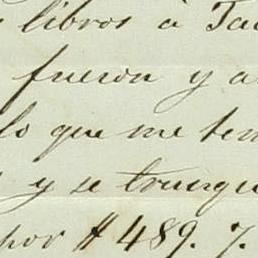 libros à
fueron y a
lo que me ten
y se trunqu
por $ 489. 7.